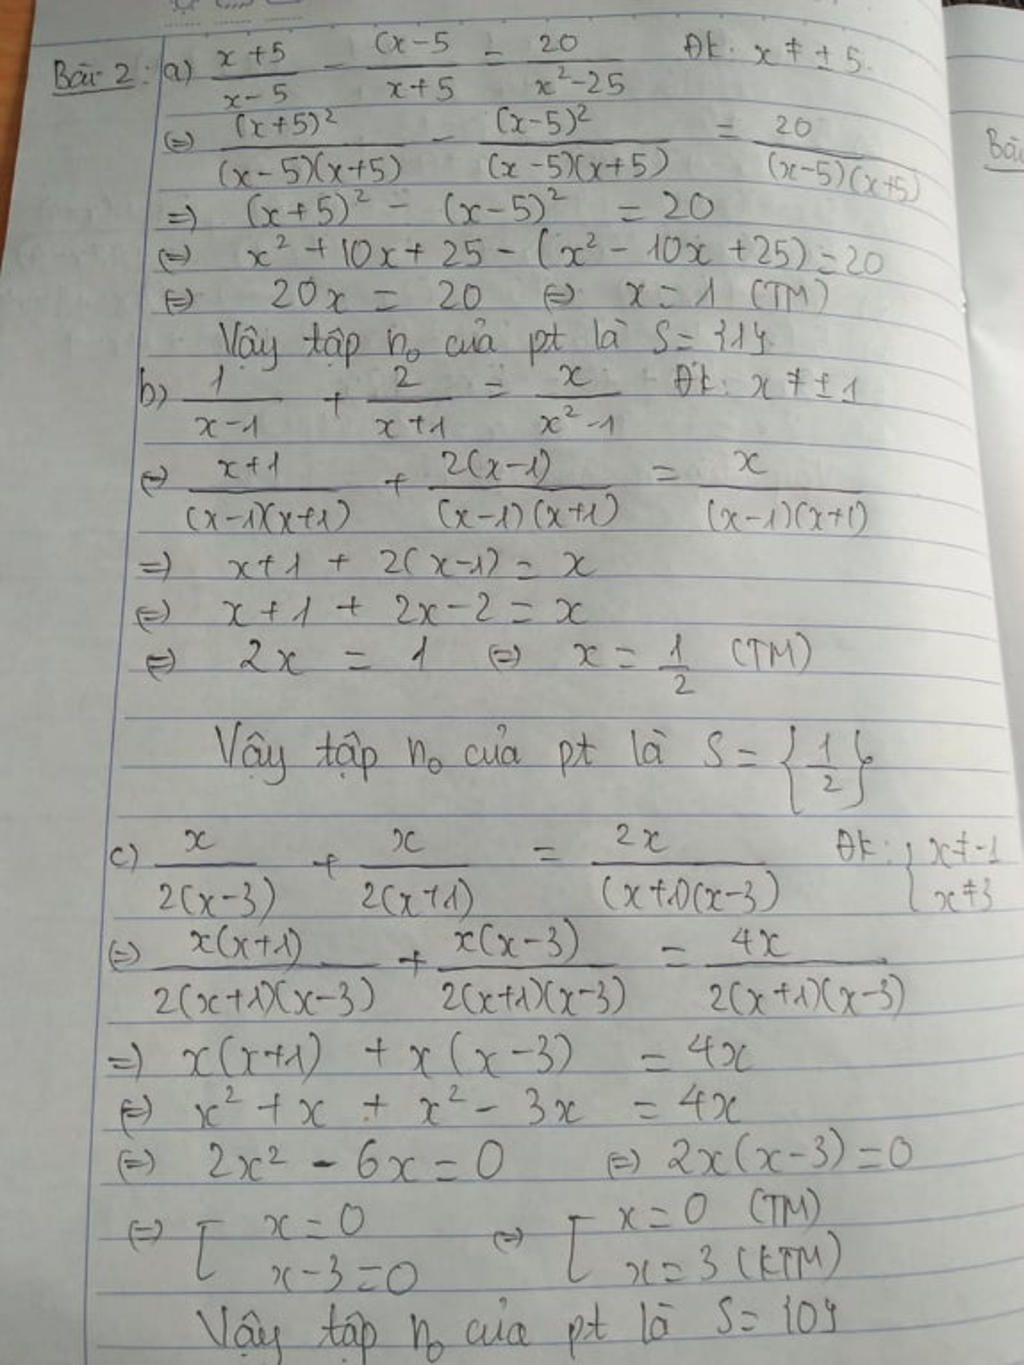 Bài 2: a) (x+5)/(x-5) - (x-5)/(x+5) = 20/(x²-25) ĐK: x ≠ ± 5.
(=) (x+5)²/((x-5)(x+5)) - (x-5)²/((x-5)(x+5)) = 20/((x-5)(x+5))
=) (x+5)² - (x-5)² = 20
(=) x² + 10x + 25 - (x² - 10x + 25) = 20
(=) 20x = 20 (=) x = 1 (TM)
Vậy tập n₀ của pt là S = {1}.
b) 1/(x-1) + 2/(x+1) = x/(x²-1) ĐK: x ≠ ± 1
(=) (x+1)/((x-1)(x+1)) + 2(x-1)/((x-1)(x+1)) = x/((x-1)(x+1))
=) x+1 + 2(x-1) = x
(=) x+1 + 2x-2 = x
(=) 2x = 1 (=) x = 1/2 (TM)
Vậy tập n₀ của pt là S = {1/2}
c) x/(2(x-3)) + x/(2(x+1)) = 2x/((x+1)(x-3)) ĐK: { x ≠ -1
x ≠ 3
(=) x(x+1)/(2(x+1)(x-3)) + x(x-3)/(2(x+1)(x-3)) = 4x/(2(x+1)(x-3))
=) x(x+1) + x(x-3) = 4x
(=) x² + x + x² - 3x = 4x
(=) 2x² - 6x = 0 (=) 2x(x-3) = 0
(=) [ x = 0 (=) [ x = 0 (TM)
x-3 = 0 x = 3 (KTM)
Vậy tập n₀ của pt là S = {0}
Bài